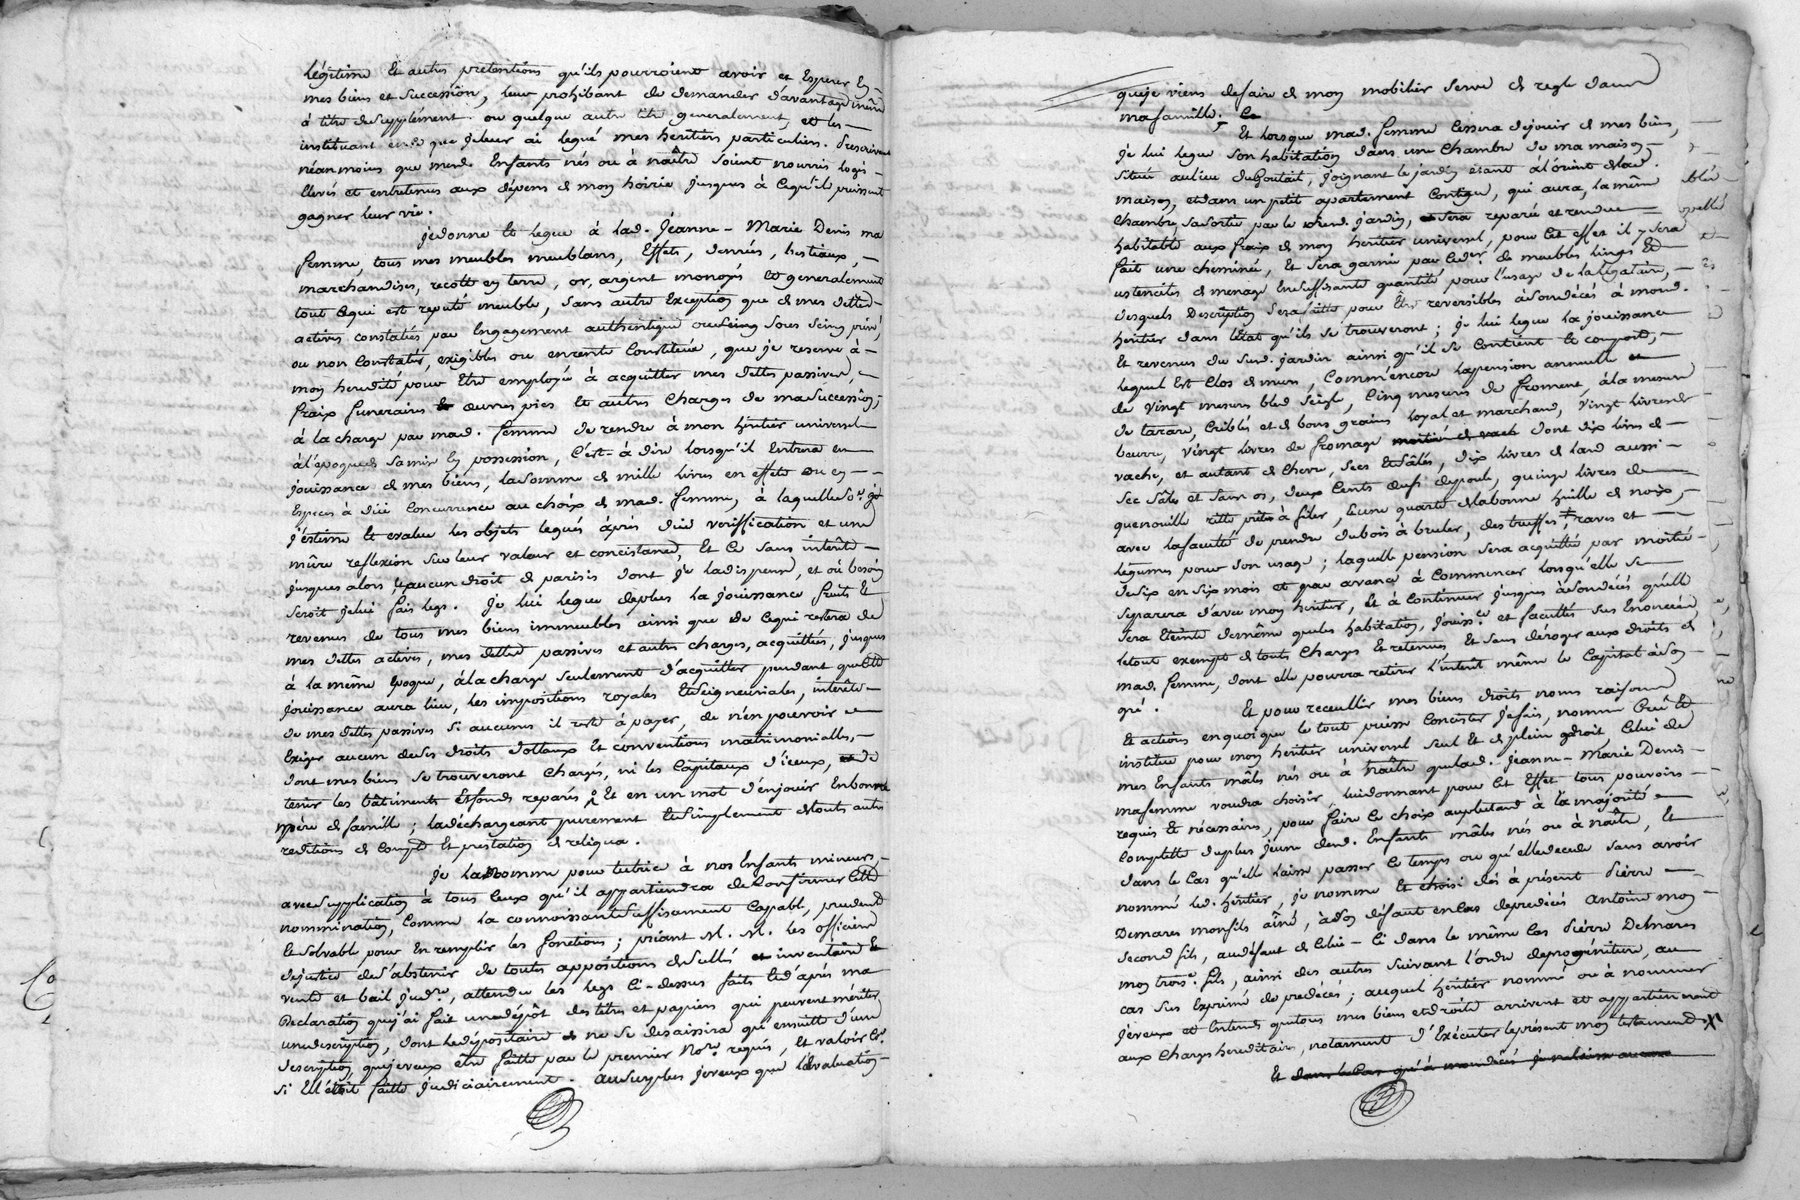 légitime et autres prétentions qu'ils pourroient avoir et Esperer En
mes biens et Succession, leur prohibant de demander d'avantage même
à titre de supplément ou quelque autre titre generalement, et les
instituant en ce que je leur ai legué mes heritiers particuliers. Prescrivant
néanmoins que mesd. Enfants nés ou à naître soient nourris logés
Elevés et entretenus aux dépens de mon hoirie jusques à ce qu'ils puissent
gagner leur vie.
je donne Et legue à lad. Jeanne-Marie Denis ma
femme, tous mes meubles meublans, Effets, denrées, bestiaux,
marchandises, recolte en terre, or, argent monoyé Et generalement
tout ce qui est reputé meuble, sans autre Exception que de mes dettes
actives constatées par Engagement authentique ou Seing sous Seing privé,
ou non Constatées, exigibles ou en rente Constituée, que je reserve à
mon heredité pour Etre employée à acquitter mes dettes passives,
fraix funeraires œuvres pies Et autres Charges de ma Succession;
à la charge par mad. femme de rendre à mon héritier universel
à l'époque de sa mise En possession, C'est-à-dire lorsqu'il Entrera en
jouissance de mes biens, la somme de mille livres en effets ou en
Especes à due Concurrence au choix de mad. femme, à laquelle
j'éstime Et evalue les objets legués après due veriffication et une
mûre reflexion sur leur valeur et concistance, Et Ce sans interêts
jusques alors, ny aucun droit de parisis dont je la dispense, et où besoin
seroit je lui fais legs. je lui legue de plus la jouissance fruits Et
revenus de tous mes biens immeubles ainsi que de ce qui restera de
mes dettes actives, mes dettes passives et autres charges, acquittées, jusques
à la même époque, à la charge seulement d'acquitter pendant que cette
jouissance aura lieu, les impositions royales Et Seigneuriales, interêts
de mes dettes passives si aucunes il reste à payer, de n'en pouvoir
Exiger aucun de ses droits dottaux Et conventions matrimonialles,
dont mes biens se trouveront Chargés, ni les Capitaux d'iceux, de
tenir les bâtiments Et fonds reparés, Et en un mot d'en jouir En bonne
mère de famille; la déchargeant purement Et Simplement de touts autres
redditions de Compte Et prestation de reliqua.
Je la Nomme pour tutrice à nos Enfants mineurs,
avec Supplication à tous Ceux qu'il appartiendra de Confirmer Cette
nommination, Comme la connoissant Suffisament Capable, prudente
Et Solvable pour En remplir les fonctions; priant M. M. les officiers
de justice de S'abstenir de toutes appositions de Scellés inventaire Et
vente et bail jud.re, attendu les legs Ci-dessus faits Et d'après ma
Déclaration que j'ai fait un dépôt des titres et papiers qui peuvent mériter
une description, dont le dépositaire ne se désaisira qu'ensuite d'une
description que je veux être faitte par le premier No.re requis, Et valoir
si Elle étoit faitte judiciairement. Au surplus je veux que l'évaluation
que je viens de faire de mon mobilier Serve de regle dans
ma famille.
Et lorsque mad. femme Cessera de jouir de mes biens,
Je lui legue Son habitation dans une Chambre de ma maison
Située au lieu du Goutail, joignant le jardin étant à l'orient de lad.
maison, et dans un petit apartement Contigu, qui aura, la même
Chambre, sa sortie par le Susd. jardin, Sera reparée et rendue
habitable aux fraix de mon heritier universel, pour Cet effet il y sera
fait une cheminée, Et sera garnie par led. de meubles linges Et
ustenciles de menage En Suffisante quantité pour l'usage de la légataire,
desquels Description sera faitte pour Etre reversibles à son décés à mond.
héritier dans l'état qu'ils se trouveront; je lui legue la jouissance
Et revenus du susd. jardin ainsi qu'il se Contient Et comporte,
lequel Est Clos de murs, Comm'encore la pension annuelle
de vingt mesures bled seigle, Cinq mesures de froment, à la mesure
de tarare, Criblés et de bons grains loyal et marchand, vingt livres de
beurre, vingt livres de fromage dont dix livres de
vache, et autant de chevre, secs Et salés, dix livres de lard aussi
sec salé et sans os, deux Cents œufs de poule, quinze livres de
quenouille à filer, une quarte de bonne huille de noix,
avec la faculté de prendre du bois à bruler, des truffes, raves et
légumes pour son usage; laquelle pension sera acquittée par moitié
de six en six mois et par avance à Commencer lorsqu'elle se
séparera d'avec mon heritier, Et à continuer jusques à son décés qu'elle
sera Eteinte de même que les habitation, jouiss.ce et facultés sus Enoncées
le tout exempt de touts Charges Et retenues Et sans déroger aux droits de
mad. femme, dont elle pourra retirer l'interêt même le Capital à son
gré. Et pour recueillir mes biens droits noms raisons
Et actions en quoi que le tout puisse Concister je fais, nomme Crée Et
institue pour mon heritier universel seul Et de plein droit Celui de
mes Enfants mâles nés ou à naître que lad. Jeanne-Marie Denis
ma femme voudra choisir, lui donnant pour Cet Effet tous pouvoirs
requis Et nécessaires, pour faire Ce choix au plus tard à la majorité
Complette du plus jeune desd. Enfants mâles nés ou à naître, Et
dans le Cas qu'elle laisse passer Ce temps ou qu'elle décéde sans avoir
nommé led. héritier, je nomme Et choisi dès à présent Pierre
Demares mon fils aîné, à son défaut en Cas de prédécés antoine mon
second fils, au défaut de Celui-Ci dans le même cas Pierre Demares
mon trois.e fils, ainsi des autres suivant l'ordre de progéniture, au
cas sus Exprimé de prédécés; auquel héritier nommé ou à nommer
je veux et Entends que tous mes biens et droits arrivent et appartiennent
aux Charges hereditaires, notament d'Exécuter le présent mon testament.
Et dans le Cas qu'à mon décés je